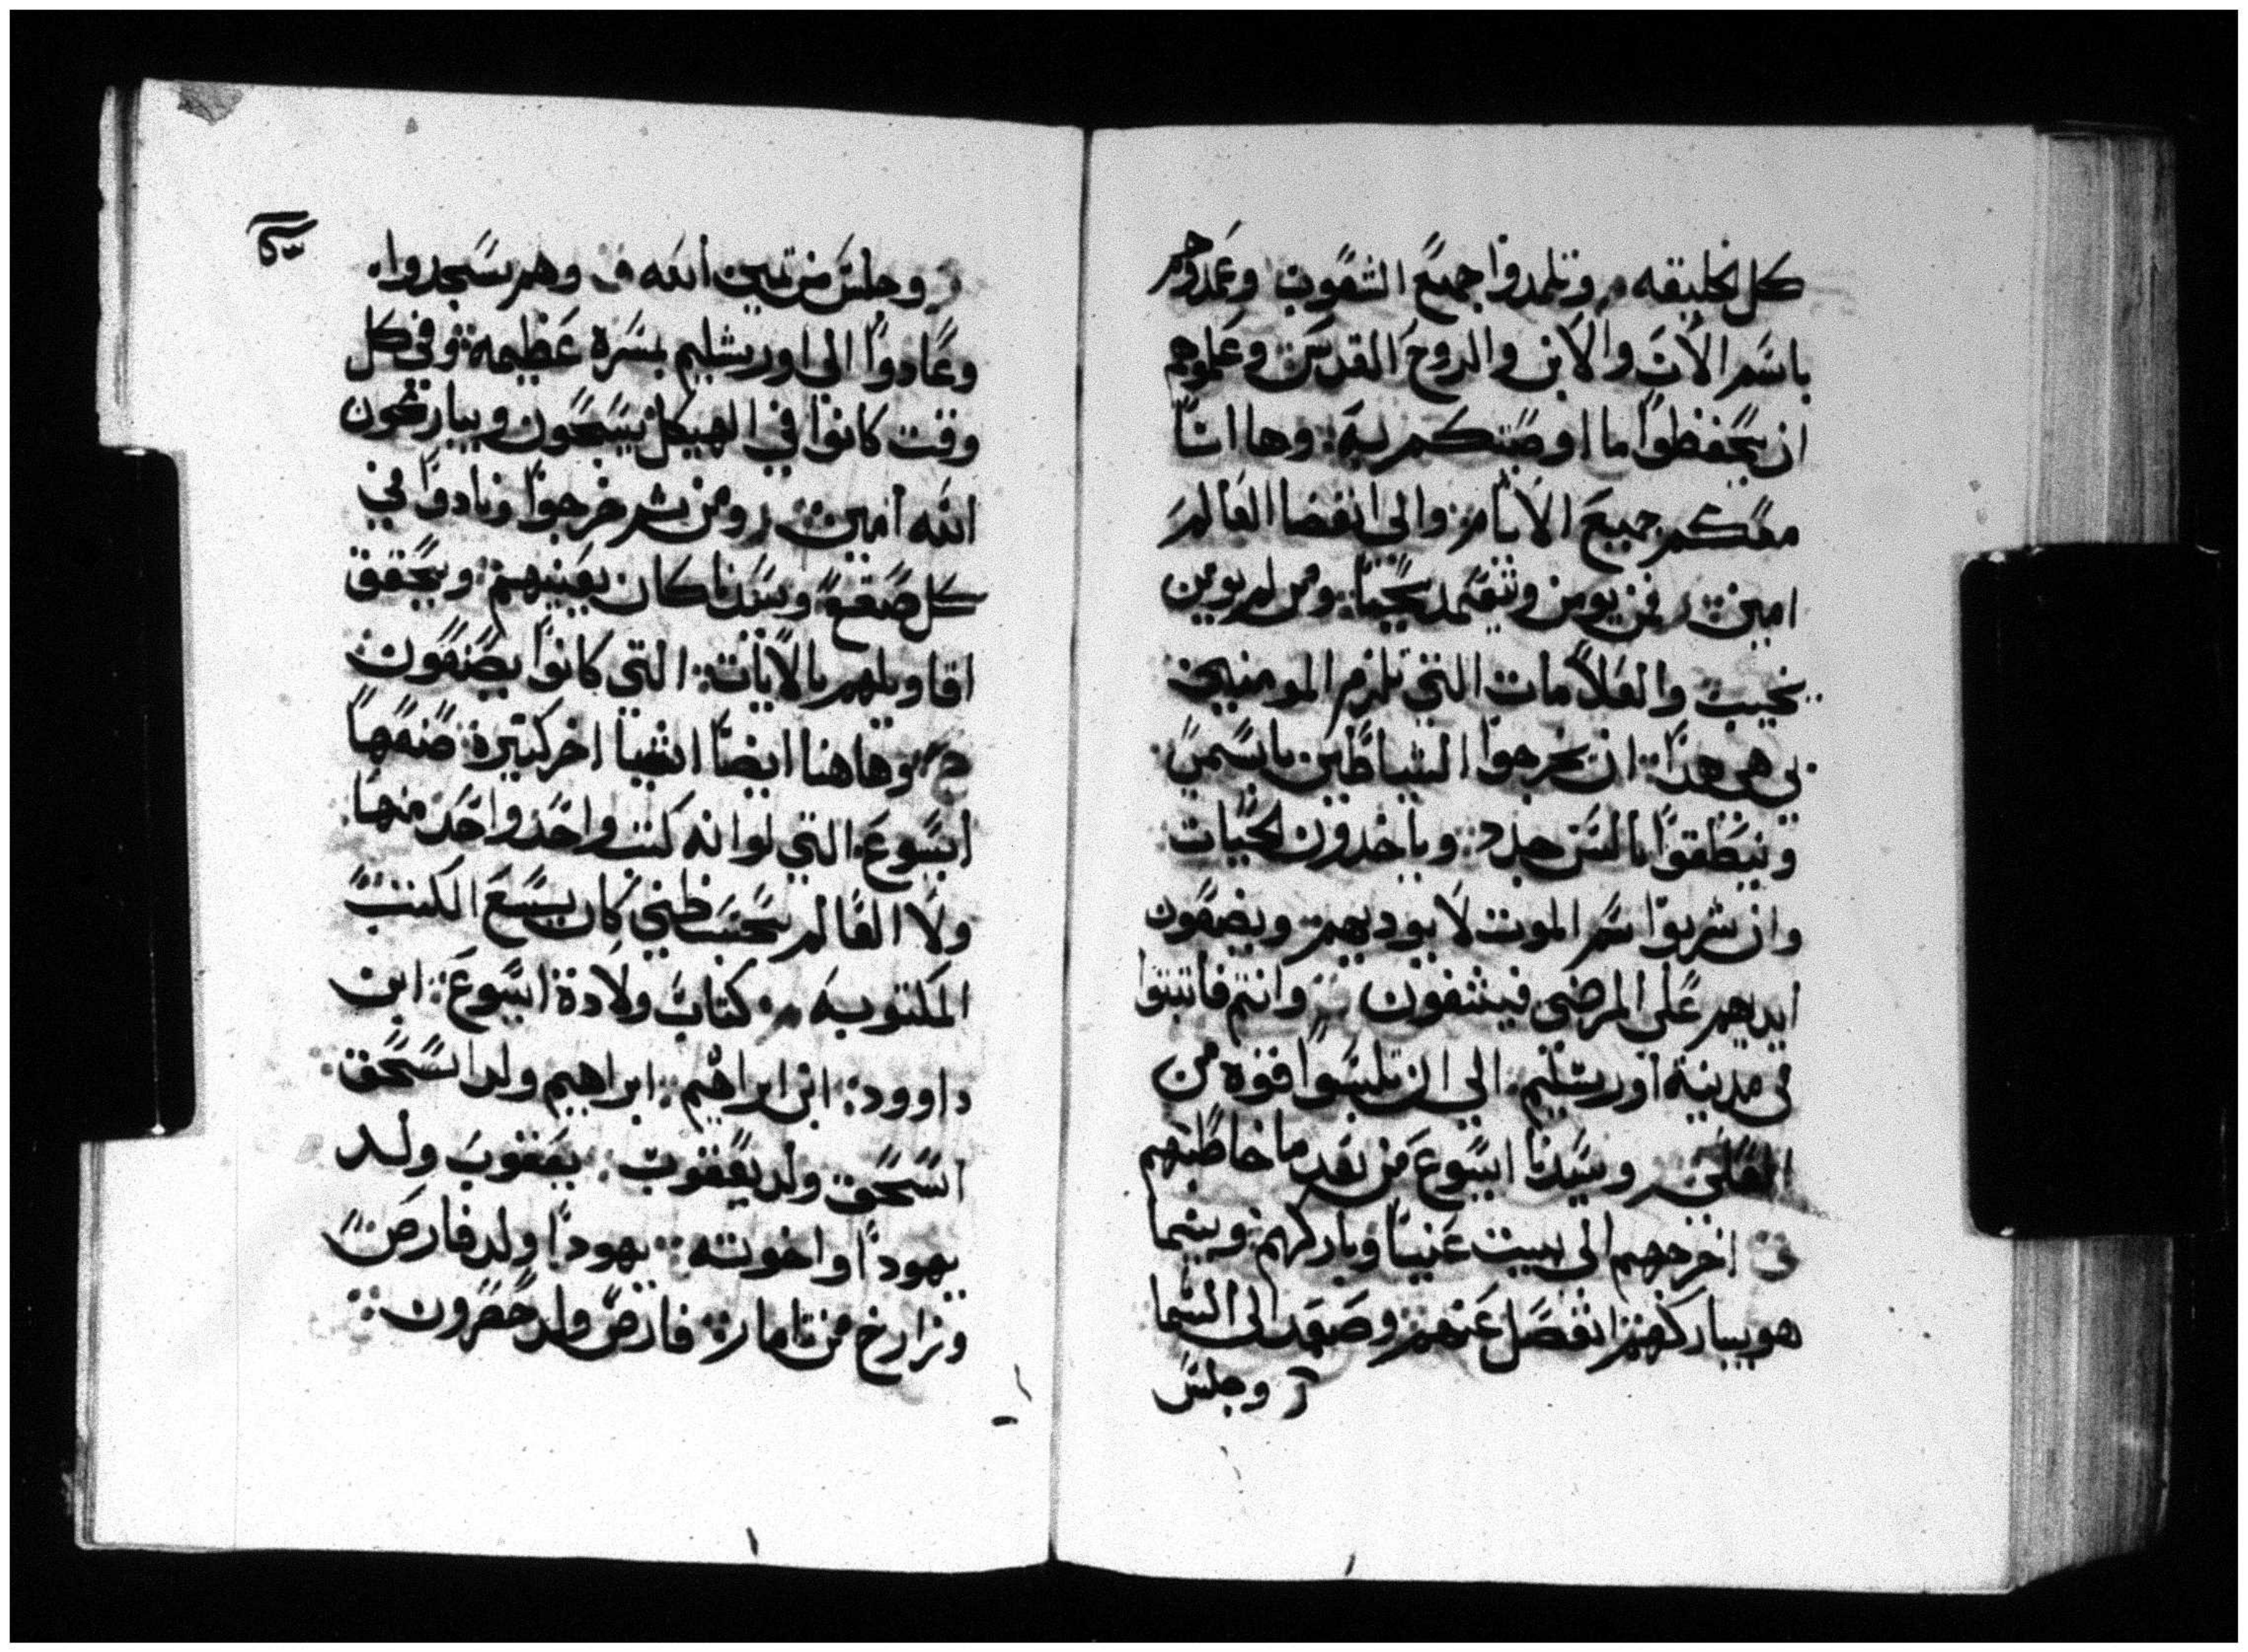 كل الخليقه وتلمدوا جميع الشعوب وعمدوهم
باسم الاب والابن والروح القدس وعلموهم
ان يحفظوا ما اوصيتكم به وها انا
معكم جميع الايام والى انقضا العالم
امين ر فمن يومن ويتعمد يحيا ومن لم يومن
يخيب والعلامات التي تلزم المومنين
بي هي هذا ان يخرجوا الشياطين باسمي
وينطقوا بالسن جدد وياخدون الحيات
وان شربوا سم الموت لا يوديهم ويضعون
ايديهم على المرضى فيشفون وانتم فاثبتوا
في مدينة اورشليم الي ان تلبسوا قوة من
العلى ر وسيدنا ايسوع من بعد ما خاطبهم
ق اخرجهم الى بيت عنيا وباركهم وبينما
هو يباركهم انفصل عنهم وصعد الى السما
ر وجلس
ر وجلس من يمين الله ق وهم سجدوا
وعادوا الي اورشليم بسرة عظيمة وفي كل
وقت كانوا في الهيكل يسبحون ويباركون
الله امين ر ومن ثم خرجوا ونادوا في
كل صقع وسيدنا كان يعينهم ويحقق
اقاويلهم بالايات التي كانوا يصنعون
ح وهاهنا ايضا اشيا اخر كثيرة صنعها
ايسوع التي لو انه كتبت واحد واحد منها
ولا العالم بحسب ظني كان يسع الكتب
المكتوبه كتاب ولادة ايسوع ابن
داوود ابن ابراهيم ابراهيم ولد اسحق
اسحق ولد يعقوب يعقوب ولد
يهودا واخوته يهودا ولد فارص
وزارخ من تامار فارص ولد حصرون